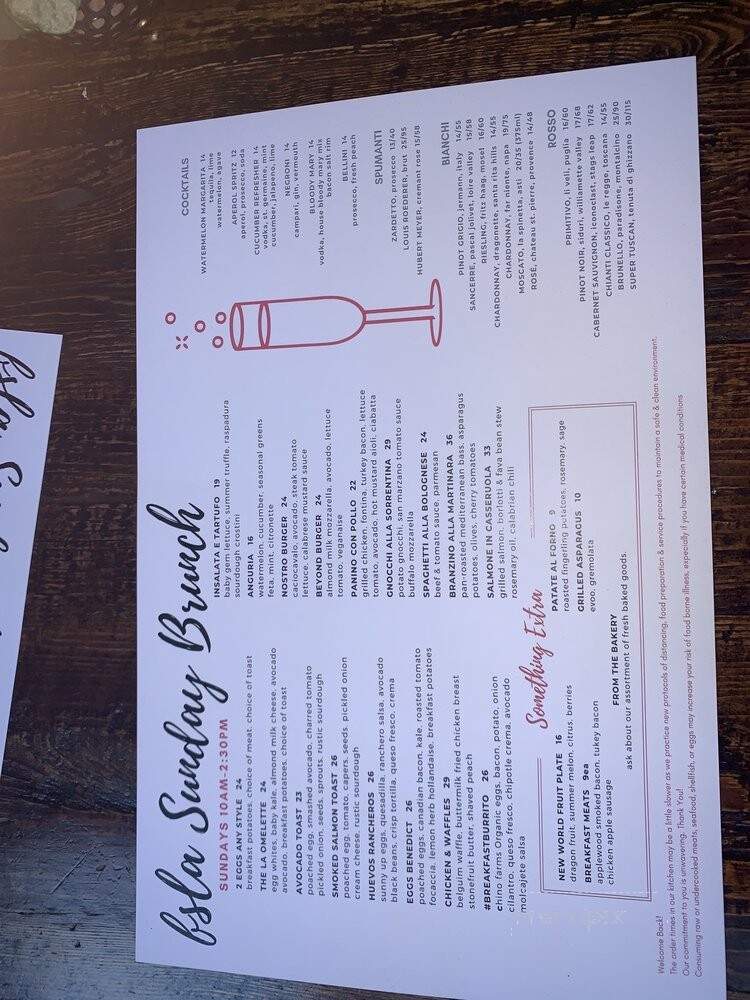 bsla Sunday Brunch
SUNDAYS 10AM-2:30PM
2 EGGS ANY STYLE 24
breakfast potatoes, choice of meat, choice of toast
THE LA OMELETTE 24
egg whites, baby kale, almond milk cheese, avocado
avocado, breakfast potatoes, choice of toast
AVOCADO TOAST 23
poached egg, smashed avocado, charred tomato
pickled onion, seeds, sprouts, rustic sourdough
SMOKED SALMON TOAST 26
poached egg, tomato, capers, seeds, pickled onion
cream cheese, rustic sourdough
HUEVOS RANCHEROS 26
sunny up eggs, quesadilla, ranchero salsa, avocado
black beans, crisp tortilla, queso fresco, crema
EGGS BENEDICT 26
poached eggs, canadian bacon, kale, roasted tomato
focaccia, lemon herb hollandaise, breakfast potatoes
CHICKEN & WAFFLES 29
belguim waffle, buttermilk fried chicken breast
stonefruit butter, shaved peach
#BREAKFASTBURRITO 26
chino farms Organic eggs, bacon, potato, onion
cilantro, queso fresco, chipotle crema, avocado
molcajete salsa
INSALATA E TARTUFO 19
baby gem lettuce, summer truffle, raspadura
sourdough crostini
ANGURIA 16
watermelon, cucumber, seasonal greens
feta, mint, citronette
NOSTRO BURGER 24
caciocavalo, avocado, steak tomato
lettuce, calabrese mustard sauce
BEYOND BURGER 24
almond milk mozzarella, avocado, lettuce
tomato, veganaise
PANINO CON POLLO 22
grilled chicken, fontina, turkey bacon, lettuce
tomato, avocado, hot mustard aioli, ciabatta
GNOCCHI ALLA SORRENTINA 29
potato gnocchi, san marzano tomato sauce
buffalo mozzarella
SPAGHETTI ALLA BOLOGNESE 24
beef & tomato sauce, parmesan
BRANZINO ALLA MARTINARA 36
pan-roasted mediterranean bass, asparagus
potatoes, olives, cherry tomatoes
SALMONE IN CASSERUOLA 33
grilled salmon, borlotti & fava bean stew
rosemary oil, calabrian chili
Something Extra
NEW WORLD FRUIT PLATE 16
dragon fruit, summer melon, citrus, berries
BREAKFAST MEATS 9ea
applewood smoked bacon, tukey bacon
chicken apple sausage
PATATE AL FORNO 9
roasted fingerling potatoes, rosemary, sage
GRILLED ASPARAGUS 10
evoo, gremolata
FROM THE BAKERY
ask about our assortment of fresh baked goods.
COCKTAILS
WATERMELON MARGARITA 14
tequila, lime
watermelon, agave
APEROL SPRITZ 12
aperol, prosecco, soda
CUCUMBER REFRESHER 14
vodka, st. germaine, mint
cucumber, jalapeno, lime
NEGRONI 14
campari, gin, vermouth
BLOODY MARY 14
vodka, house bloody mary mix
bacon salt rim
BELLINI 14
prosecco, fresh peach
SPUMANTI
ZARDETTO, prosecco 13/40
LOUIS ROEDERER, brut 25/95
HUBERT MEYER, cremant rose 15/58
BIANCHI
PINOT GRIGIO, jermann, italy 14/55
SANCERRE, pascal jolivet, loire valley 15/58
RIESLING, fritz haag, mosel 16/60
CHARDONNAY, dragonette, santa rita hills 14/55
CHARDONNAY, far niente, napa 19/75
MOSCATO, la spinetta, asti 20/35 (375ml)
ROSE, chateau st. pierre, provence 14/48
ROSSO
PRIMITIVO, li veli, puglia 16/60
PINOT NOIR, siduri, williamette valley 17/68
CABERNET SAUVIGNON, iconoclast, stags leap 17/62
CHIANTI CLASSICO, le regge, toscana 14/55
BRUNELLO, paradisone, montalcino 25/90
SUPER TUSCAN, tenuta di ghizzano 30/115
Welcome Back!
The order times in our kitchen may be a little slower as we practice new protocols of distancing, food preparation & service procedures to maintain a safe & clean environment.
Our commitment to you is unwavering. Thank You!
Consuming raw or undercooked meats, seafood, shellfish, or eggs may increase your risk of food borne illness, especially if you have certain medical conditions